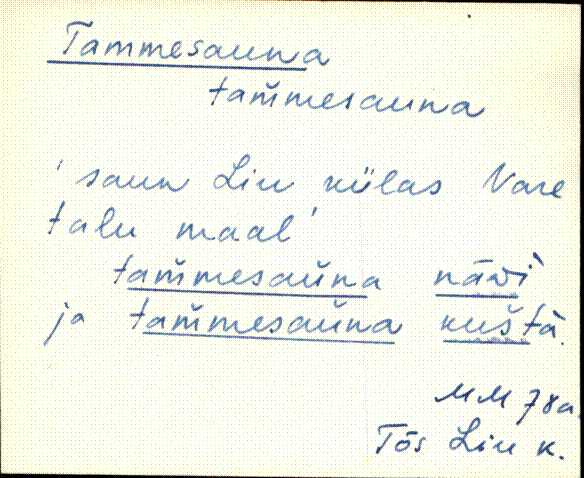 Tammesauna
tam̆mesauna
' saun Liu külas Vare
talu maal '
tam̆mesaŭna
ja tam̆mesaŭna
MM 78a.
Tõs Liu k.